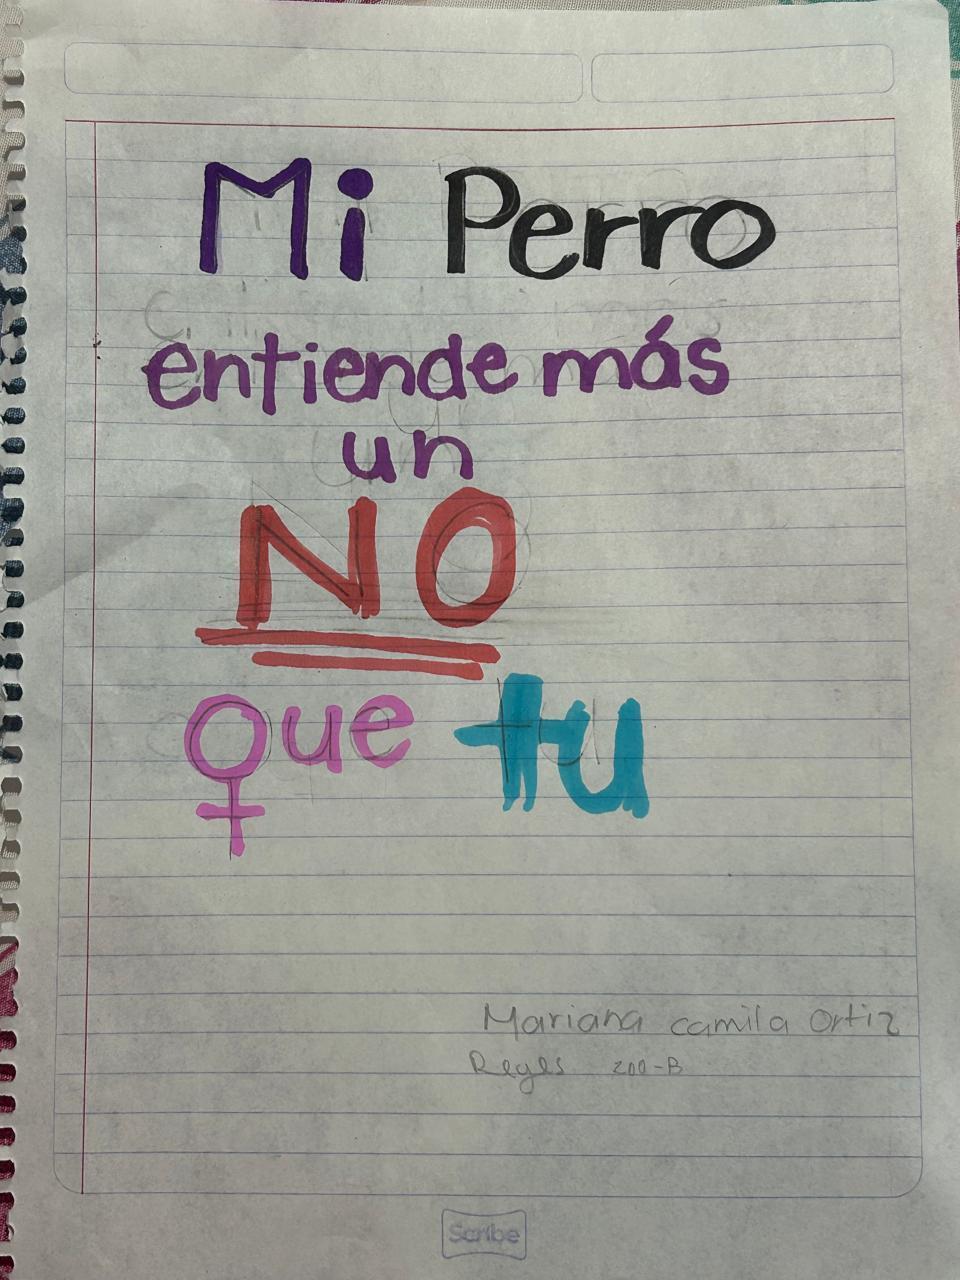 Mi Perro
entiende más
un
NO
que tu
Mariana camila Ortiz
Reyes 200-B
Scribe